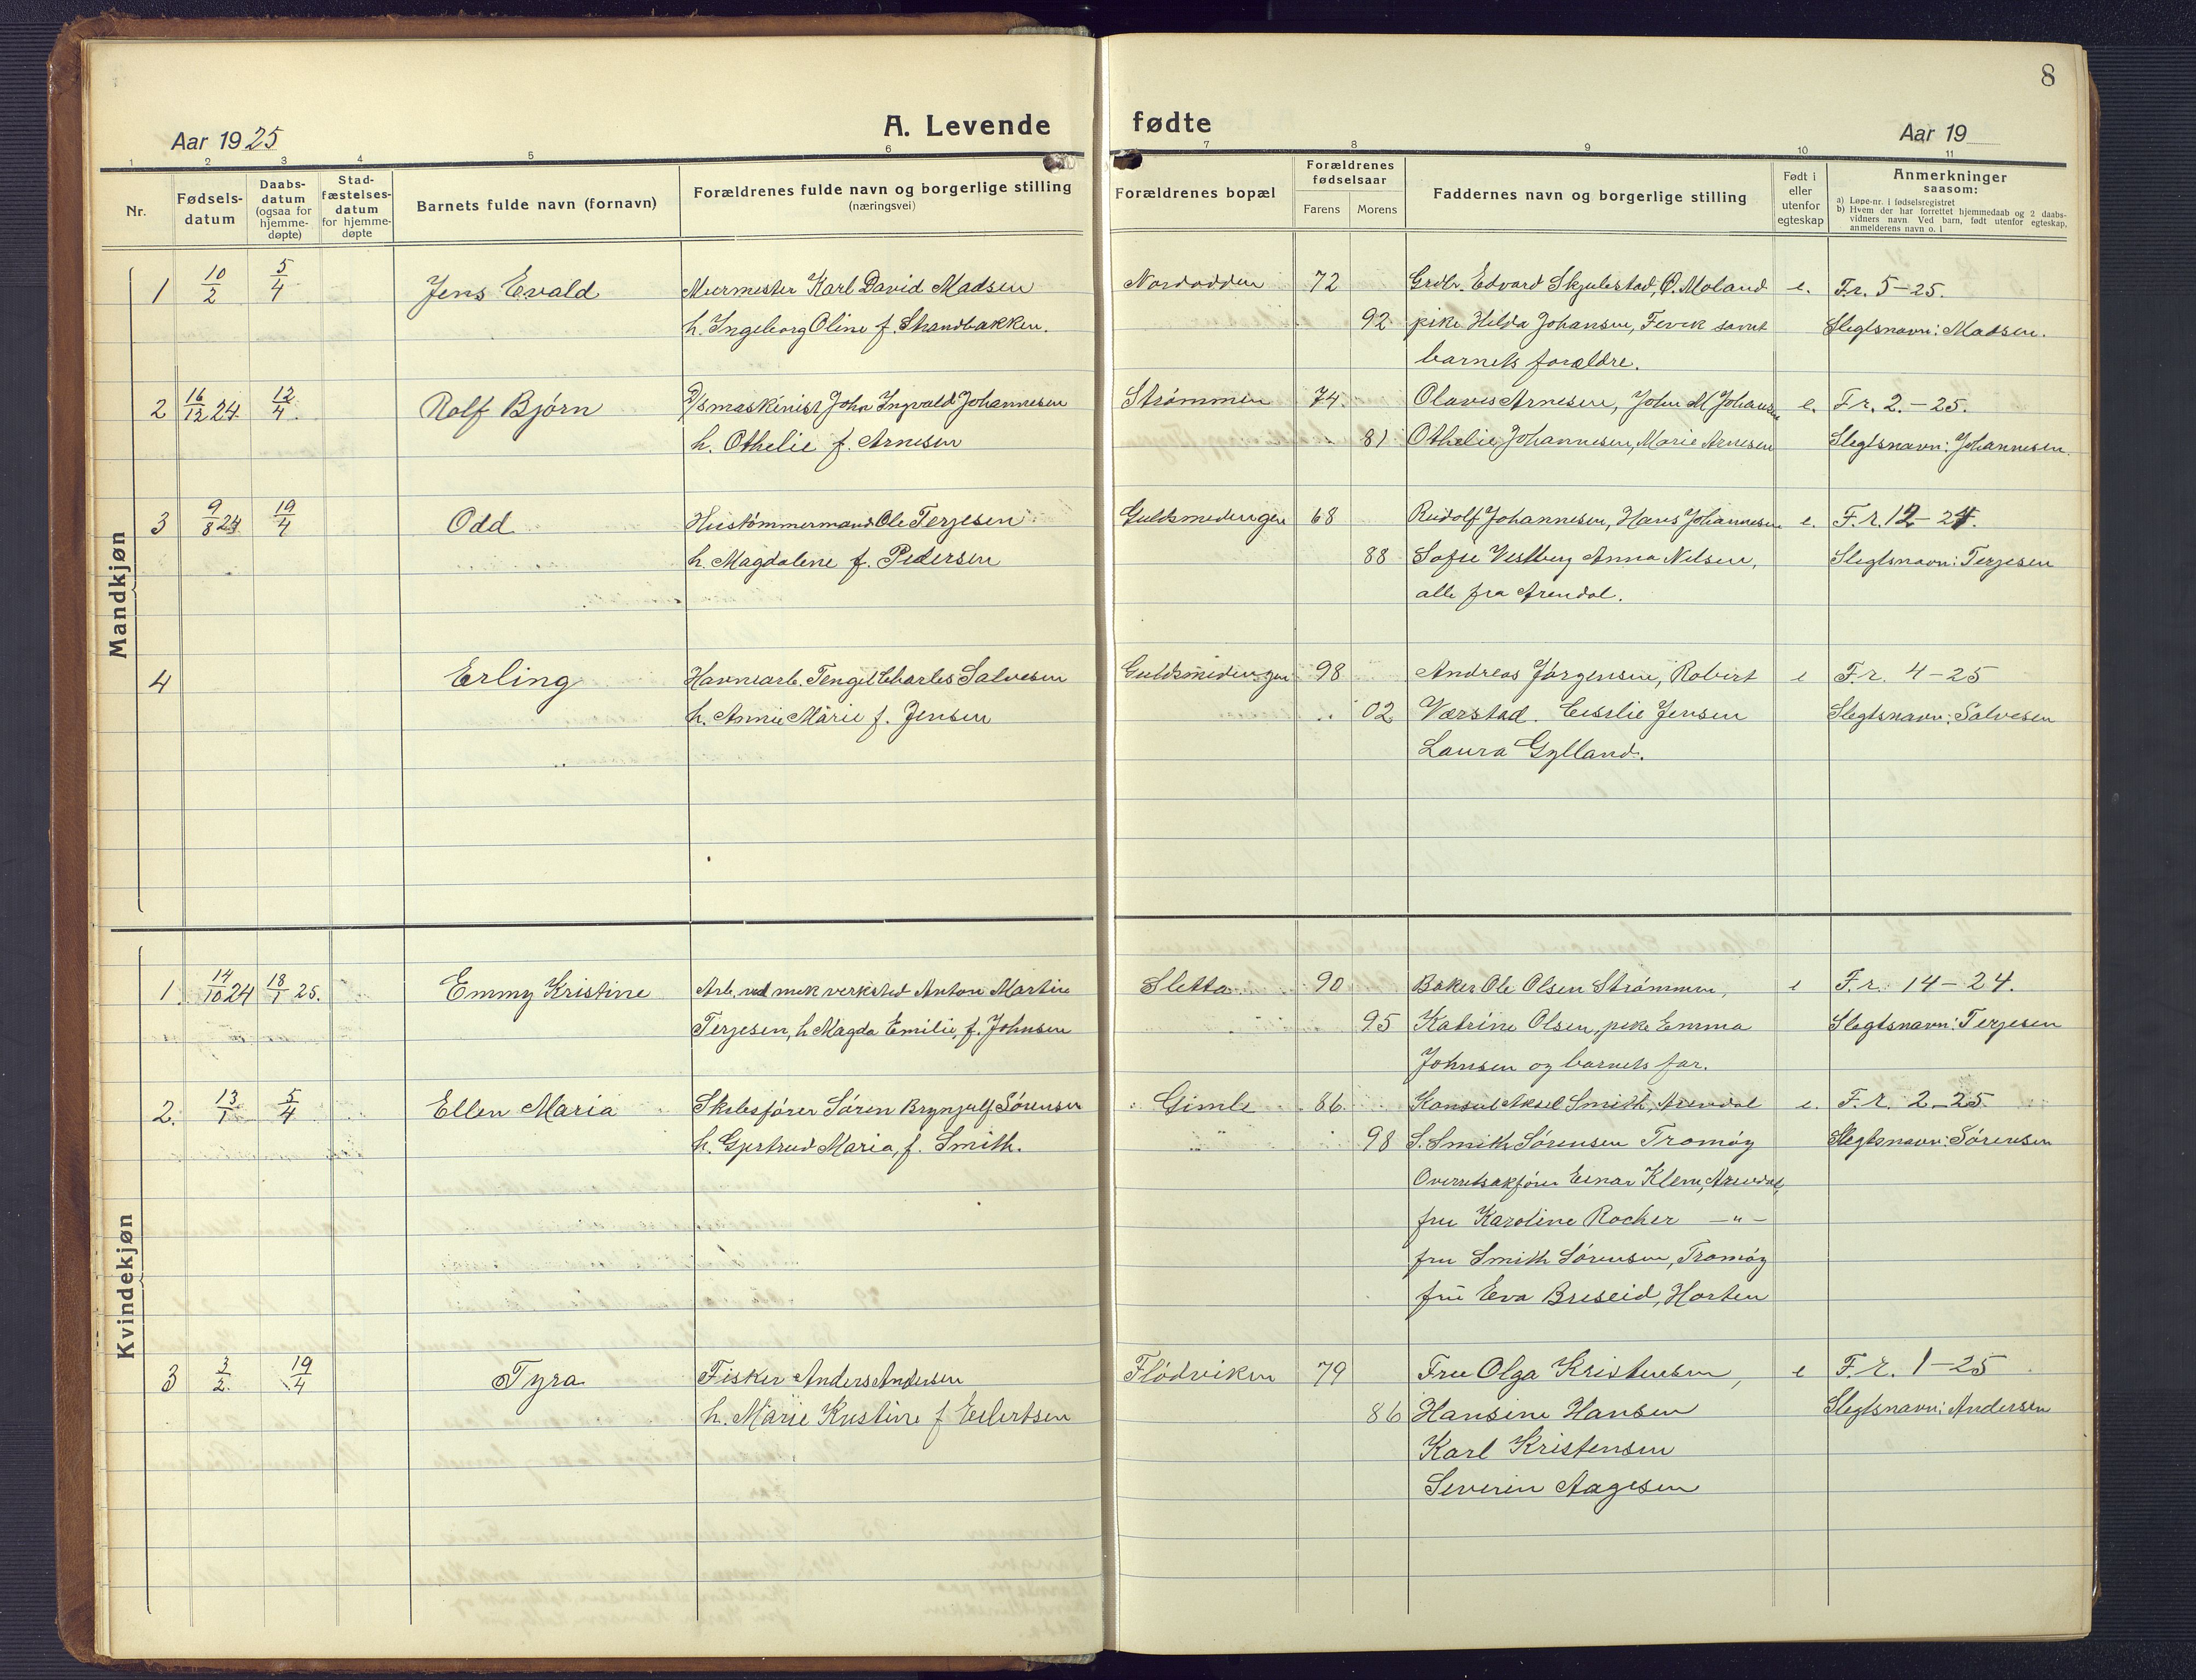 8
Aar 1925
A. Levende
fødte
Aar 19
1 2 3 4 5 6 7 8 9 10 11
Nr.
Fødsels-
datum
Daabs-
datum
(ogsaa for
hjemme-
døpte)
Stad-
fæstelses-
datum
for hjemme-
døpte
Barnets fulde navn (fornavn)
Forældrenes fulde navn og borgerlige stilling
(næringsvei)
Forældrenes bopæl
Forældrenes
fødselsaar
Farens Morens
Faddernes navn og borgerlige stilling
Født i
eller
utenfor
egteskap
Anmerkninger
saasom:
a) Løpe-nr. i fødselsregistret
b) Hvem der har forrettet hjemmedaab og 2 daabs-
vidners navn Ved barn, født utenfor egteskap,
anmelderens navn o. l
Mandkjøn
1 10/2 5/4 Jens Evald Murmester Karl David Madsen Nordodden 72 Grdbr. Edvard Skjulestad, Ø. Moland e. F.r. 5-25.
h. Ingeborg Oline f. Strandbakken. 92 pike Hilda Johansen, Fevik samt Slegtsnavn: Madsen.
barnets forældre.
2 16/12 24 12/4. Rolf Bjørn D/smaskinist John Ingvald Johannesen Strømmen 74. Olaves Arnesen, John M Johansen e. F.r. 2.-25.
h. Othelie f. Arnesen 81 Othelie Johannesen, Marie Arnesen Slegtsnavn: Johannesen.
3 9/8 24 19/4 Odd Hustømmermand Ole Terjesen Guldsmedengen 68 Rudolf Johannesen, Hans Johannesen e. F.r. 12-24.
h. Magdalene f. Pedersen 88 Sofie Vestberg Anna Nilsen, Slegtsnavn: Terjesen
alle fra Arendal.
4 Erling Havnearb. Tengel Charles Salvesen Guldsmedengen 98 Andreas Jørgensen, Robert e F.r. 4-25
h. Annie Marie f. Jensen 02 Værstad. Cecilie Jensen Slegtsnavn: Salvesen
Laura Gylland.
Kvindekjøn
1. 14/10 24 18/1 25. Emmy Kristine Arb. ved mek verksted Anton Martin Sletta 90 Baker Ole Olsen Strømmen, e F.r. 14-24.
Terjesen, h Magda Emilie, f. Johnsen 95 Katrine Olsen, pike Emma Slegtsnavn: Terjesen
Johnsen og barnets far.
2. 13/1 5/4 Ellen Maria Skibsfører Søren Brynjulf Sørensen Gimle 86 Konsul Aksel Smith, Arendal e. F.r. 2-25
h. Gjertrud Maria, f. Smith. 98 S. Smith Sørensen Tromøy Slegtsnavn: Sørensen
Overretsakfører Einar Klem, Arendal,
fru Karoline Rocher -"-
fru Smith Sørensen, Tromøy
fru Eva Breseid, Horten
3 3/2. 19/4 Tyra Fisker Anders Andersen Flødviken 79 Fru Olga Kristensen, e F.r. 1-25
h. Marie Kristine f Eilertsen 86 Hansine Hansen Slegtsnavn: Andersen
Karl Kristensen
Severin Aagesen